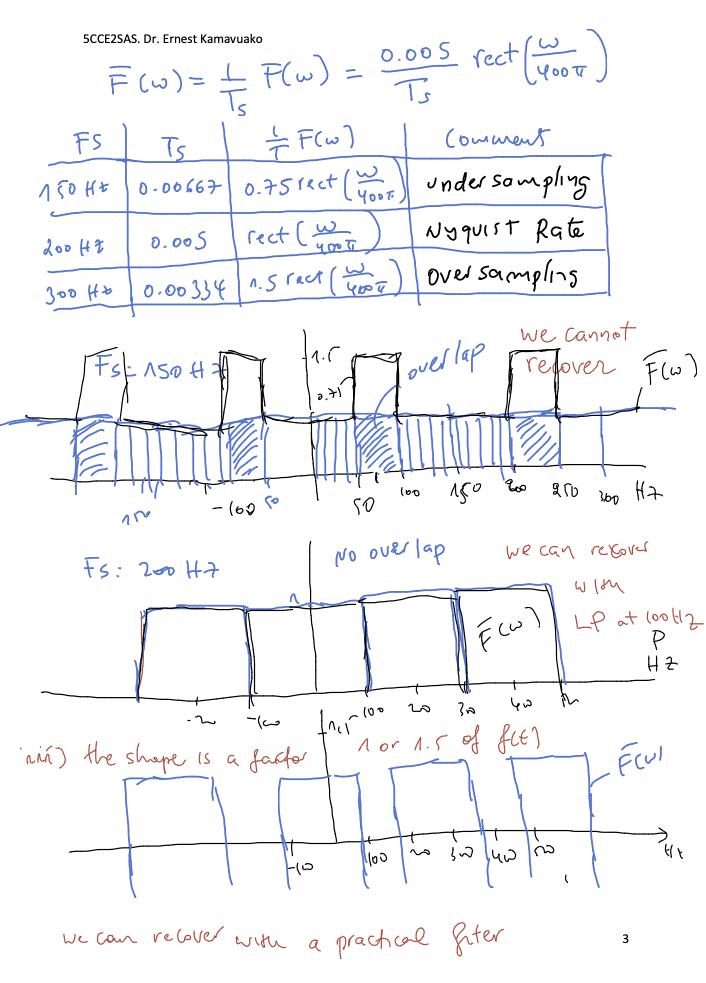 5CCE2SAS. Dr. Ernest Kamavuako
F̅(ω) = 1/Ts F(ω) = 0.005/Ts rect(ω/400π)
FS Ts 1/T F(ω) Comment
150 Hz 0.00667 0.75 rect(ω/400π) undersampling
200 Hz 0.005 rect(ω/400π) Nyquist Rate
300 Hz 0.00334 1.5 rect(ω/400π) Oversampling
we cannot
recover
Fs = 150 Hz 1.5 overlap F̅(ω)
0.75
150 -100 50 50 100 150 200 250 300 Hz
Fs: 200 Hz No overlap we can recover
with
LP at 100Hz
P
HZ
1 F̅(ω)
-200 -100 100 200 300 400
iii) the shape is a factor 1 or 1.5 of f(t)
F̅(ω)
-100 100 200 300 400 500 Hz
we can recover with a practical filter
3